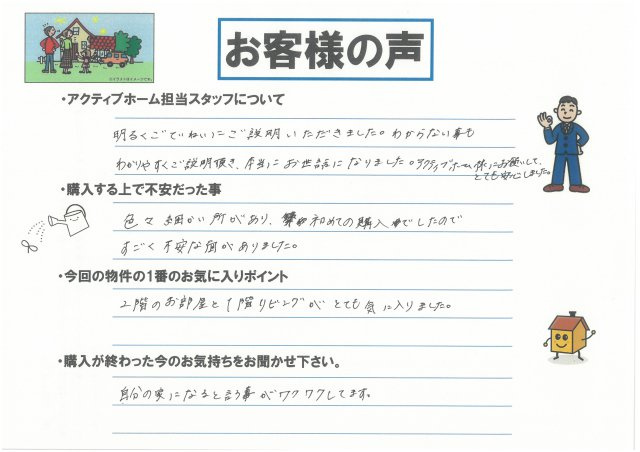 お客様の声
※イラストはイメージです。
・アクティブホーム担当スタッフについて
明るくごていねいにご説明いただきました。わからない事も
わかりやすくご説明頂き、本当にお世話になりました。アクティブホーム様にお願いして、
とても安心しました。
・購入する上で不安だった事
色々細かい所があり、初めての購入でしたので
すごく不安な面がありました。
・今回の物件の1番のお気に入りポイント
2階のお部屋と1階リビングがとても気に入りました。
・購入が終わった今のお気持ちをお聞かせ下さい。
自分の家になると言う事がワクワクしてます。